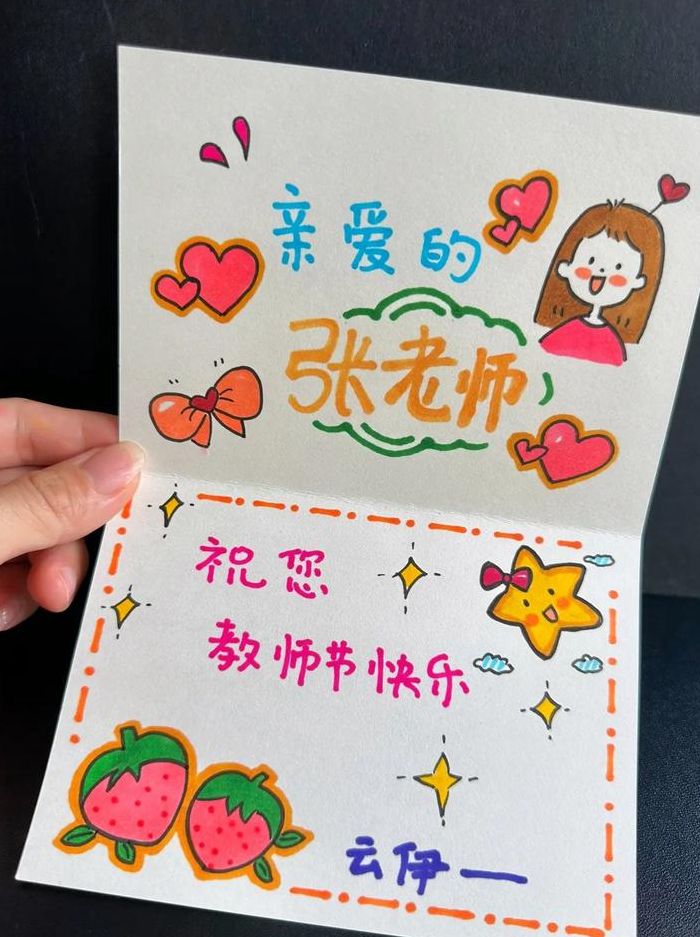 亲爱的
张老师
祝您
教师节快乐
云伊一